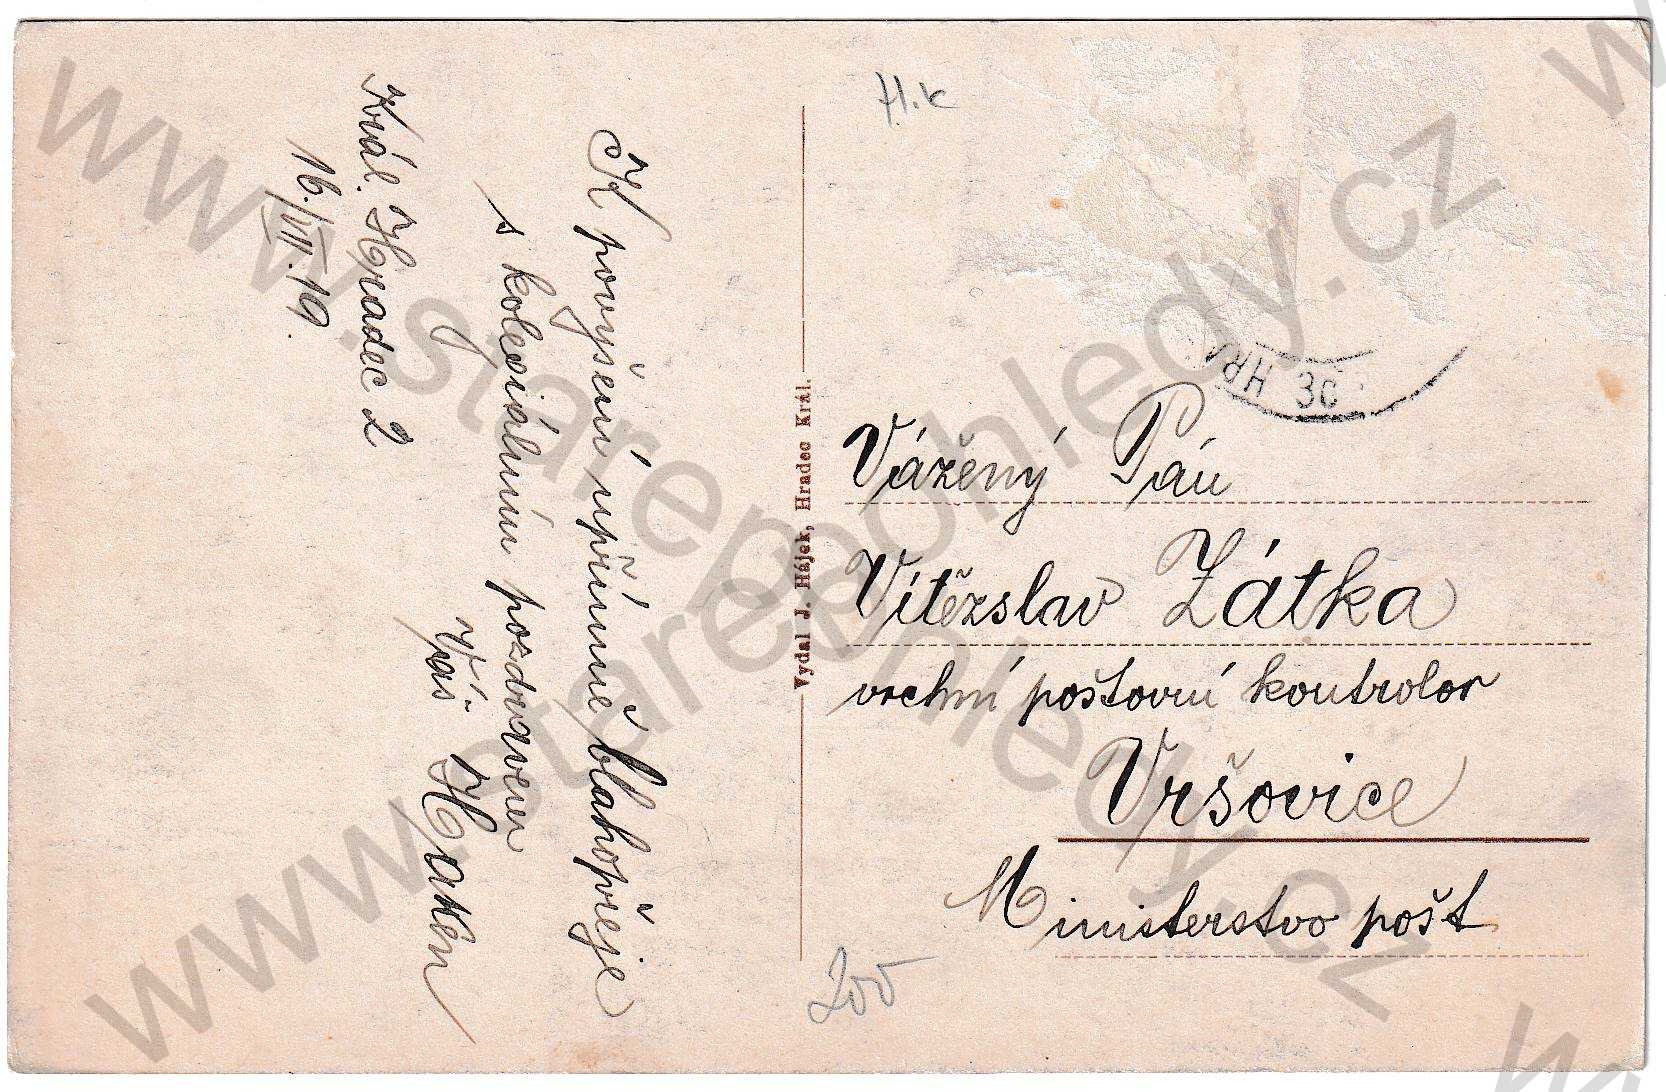 K povýšení upřímně blahopřeje
s kolegiálním pozdravem
Váš Haken
Král. Hradec 2
16./VIII.19.
Vydal J. Hájek, Hradec Král.
H.K
HRA
3c
Vážený Pán
Vítězslav Zátka
vrchní poštovní kontrolor
Vršovice
Ministerstvo pošt
200
www.starepohledy.cz
www.starepohledy.cz